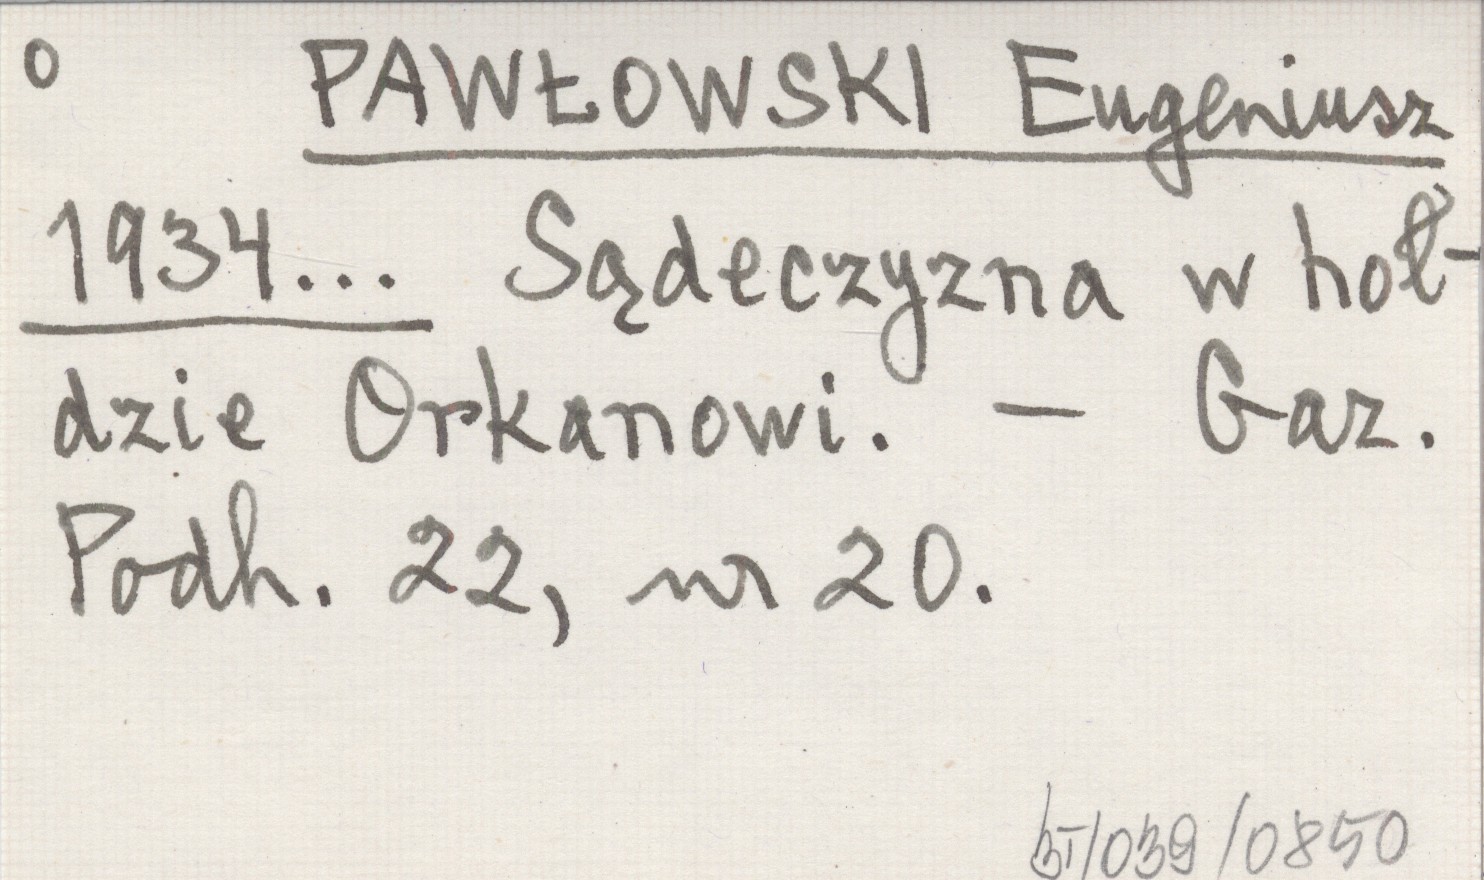 o PAWŁOWSKI Eugeniusz
1934... Sądeczyzna w hoł-
dzie Orkanowi. — Gaz.
Podh. 22, nr 20.
/039/0850